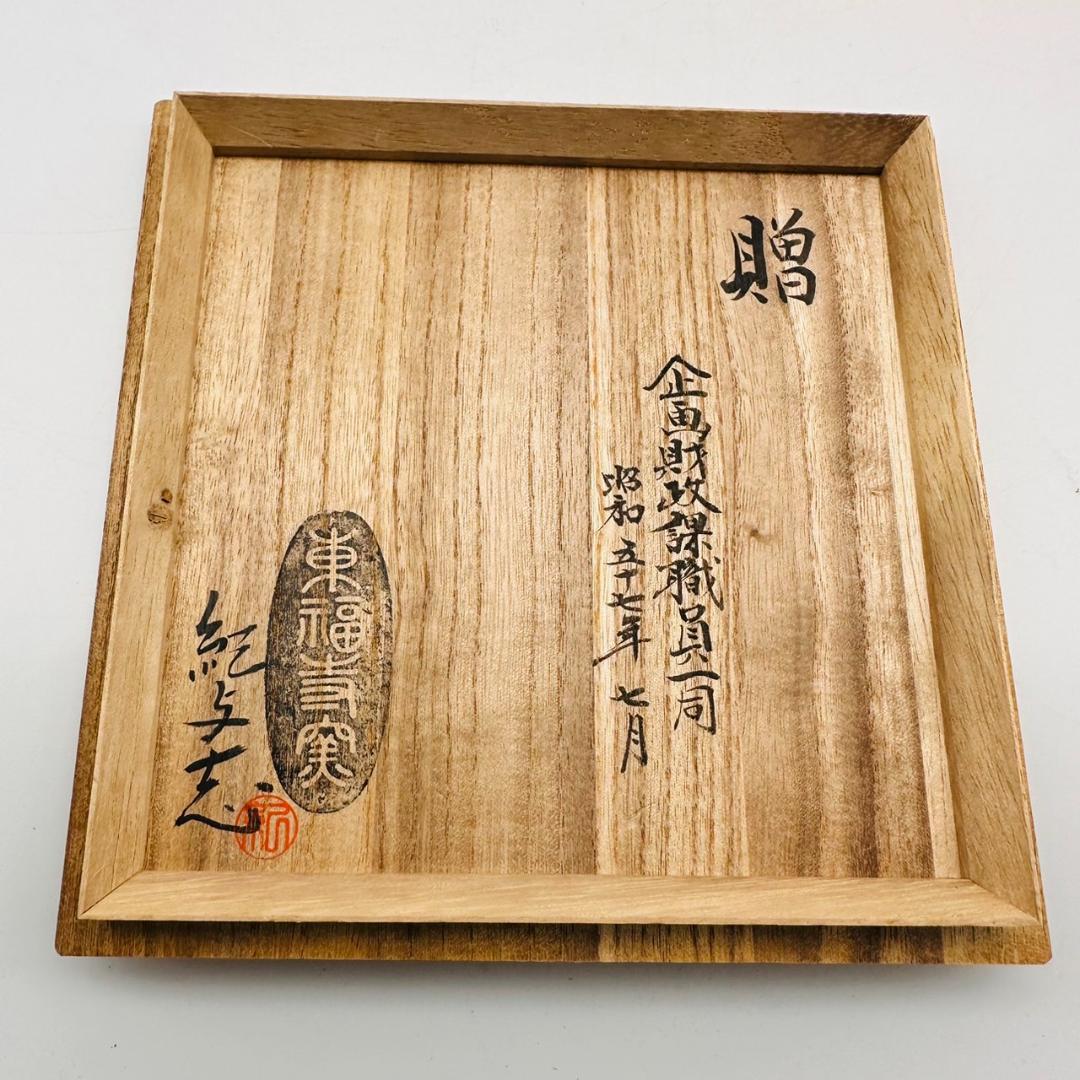 贈
企画財政課職員一同
昭和五十七年 七月
東福寺窯